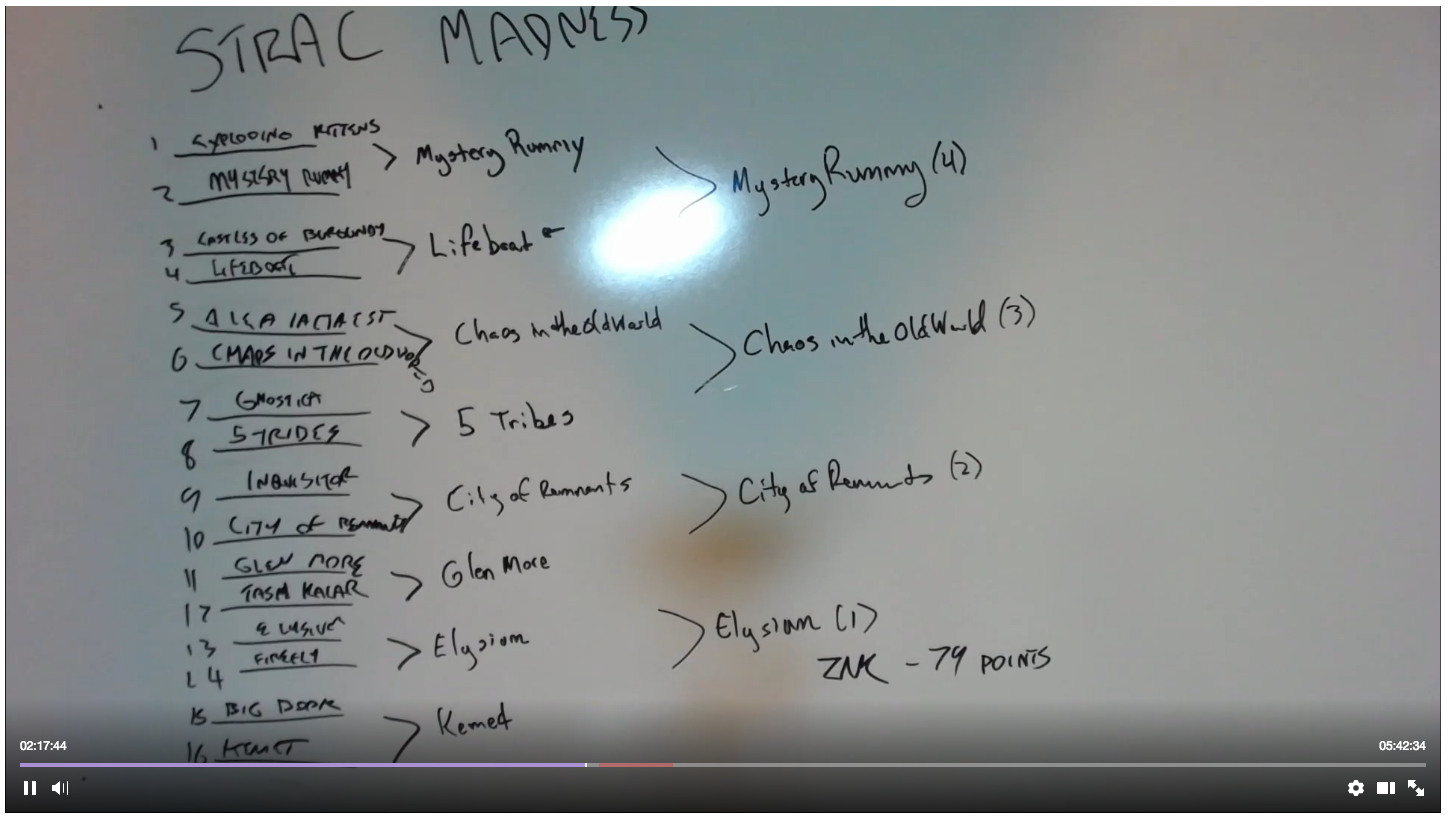 STRAC MADNESS
1 EXPLODING KITTENS
2 MYSTERY RUMMY
3 CASTLES OF BURGUNDY
4 LIFEBOAT
5 ALEA IACTA EST
6 CHAOS IN THE OLD WORLD
7 GNOSTICA
8 5 TRIBES
9 INQUISITOR
10 CITY OF REMNANTS
11 GLEN MORE
12 TASH KALAR
13
14 FIREFLY
15 BIG BOOK
16 KEMET
Mystery Rummy
Lifeboat ←
Chaos in the Old World
5 Tribes
City of Remnants
Glen More
Elysium
Kemet
Mystery Rummy (4)
Chaos in the Old World (3)
City of Remnants (2)
Elysium (1)
ZNK - 79 POINTS
02:17:44
05:42:34